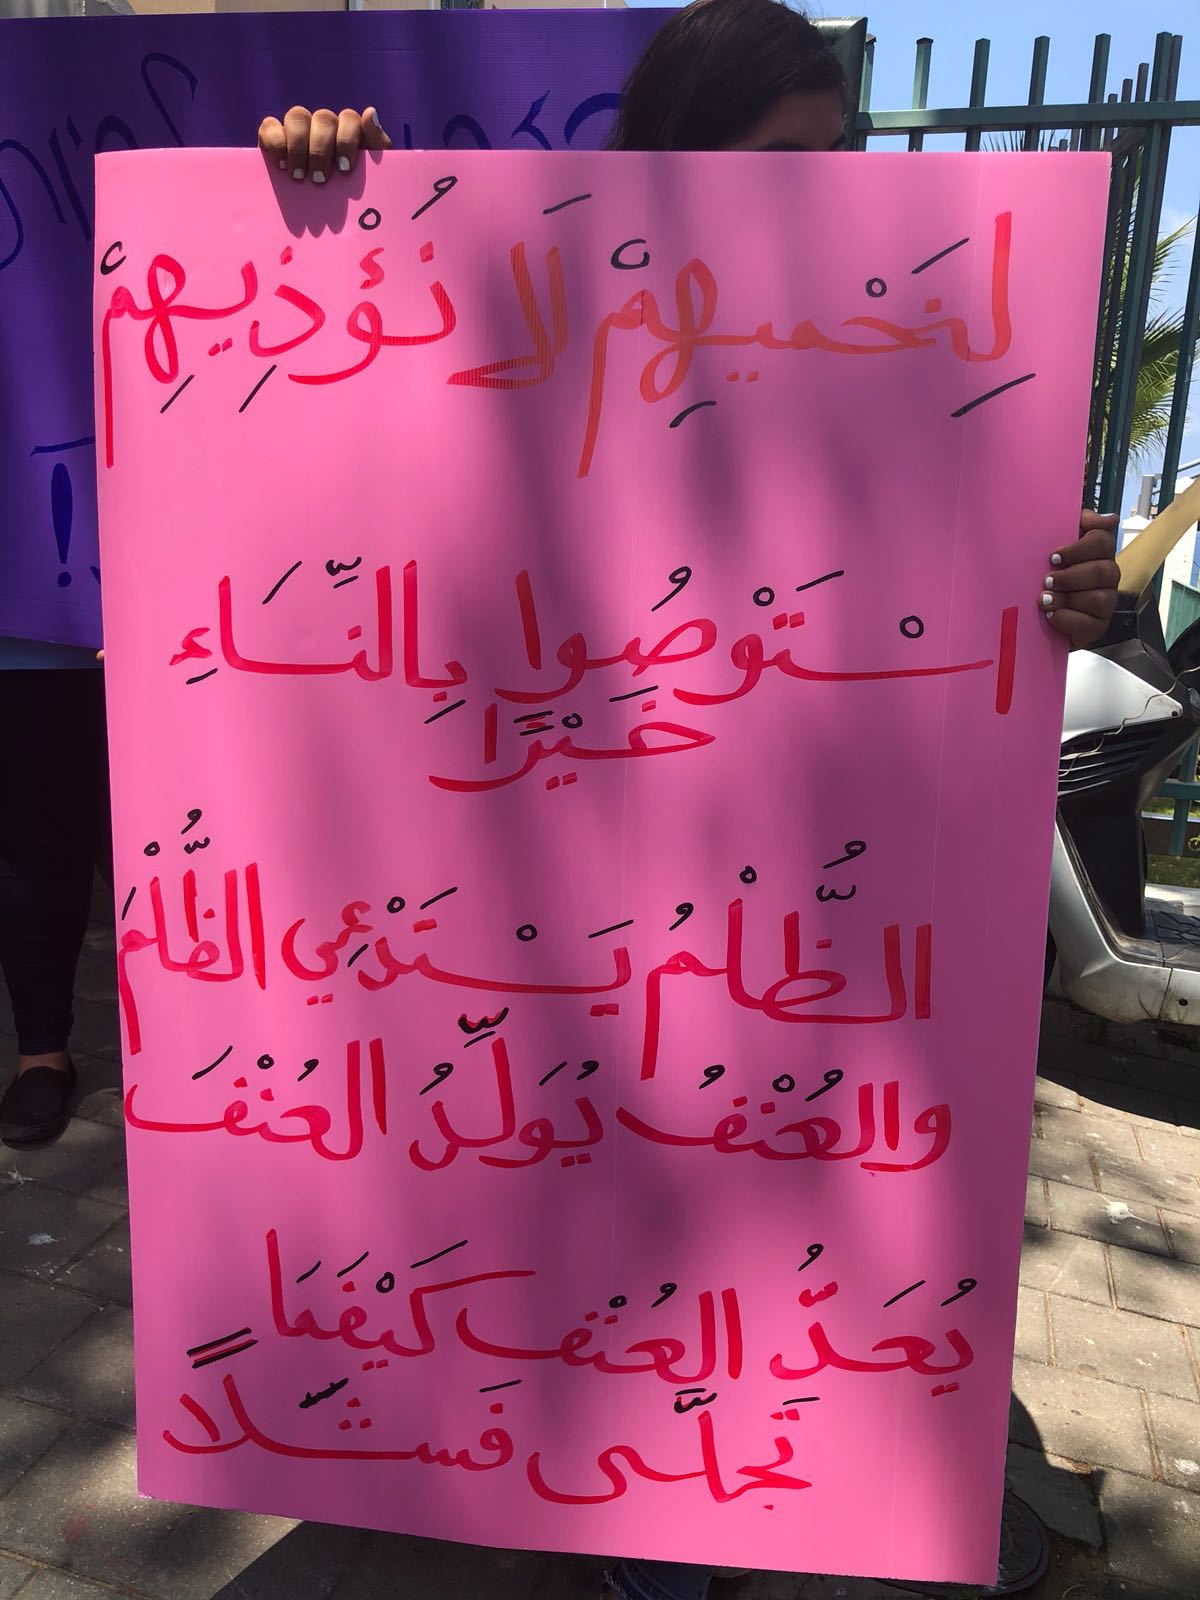 لِنَحْميهِمْ لَا نُؤْذِيهِمْ
اسْتَوْصُوا بِالنِّسَاءِ
خَيْرًا
الظُّلْمُ يَسْتَدْعِي الظُّلْمَ
والعُنْفُ يُوَلِّدُ العُنْفَ
يُعَدُّ العُنْف كَيْفَمَا
تَجلَّى فَشَلًا